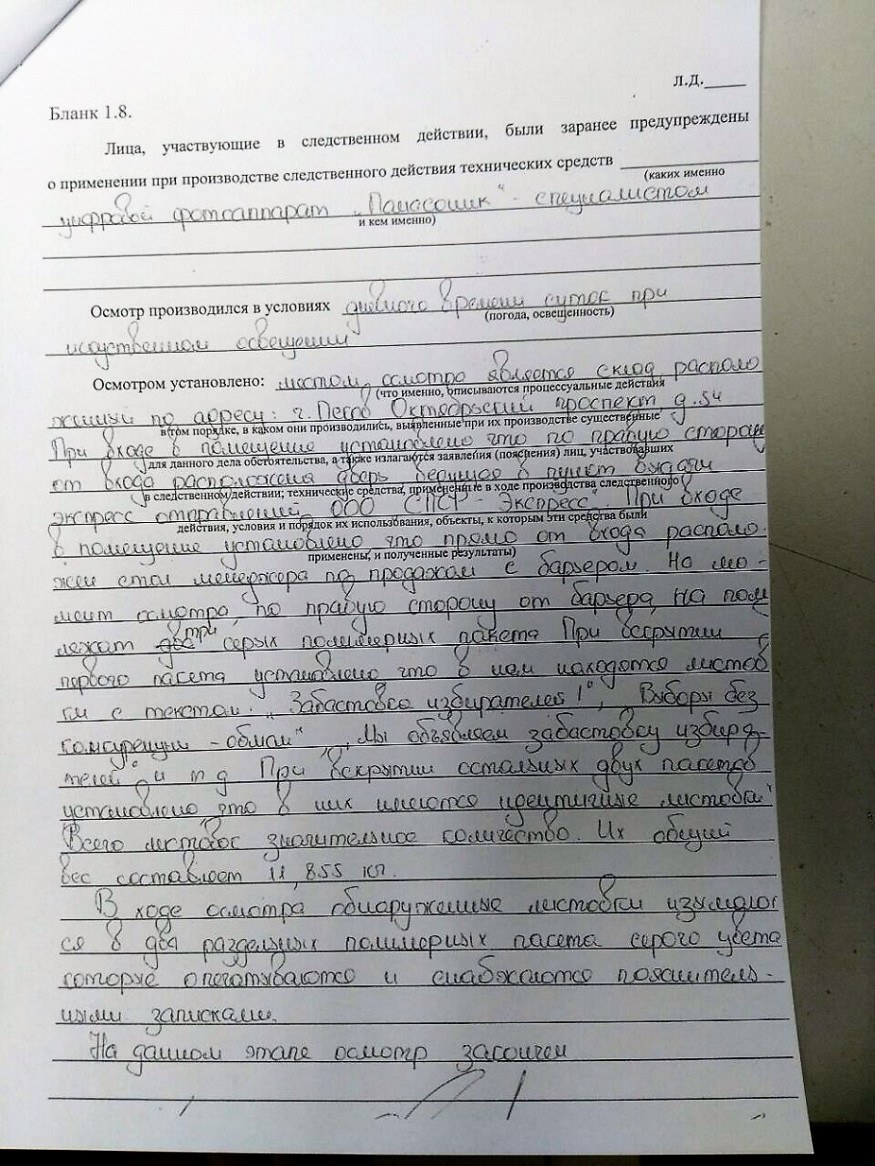 Л.Д.
Бланк 1.8.
Лица, участвующие в следственном действии, были заранее предупреждены
о применении при производстве следственного действия технических средств
(каких именно
цифровой фотоаппарат „Панасоник" - специалистом
и кем именно)
Осмотр производился в условиях дневного времени суток при
(погода, освещенность)
искуственном освещении
Осмотром установлено: местом осмотра является склад, располо
(что именно, описываются процессуальные действия
женный по адресу: г. Октябрьский проспект д. 54
в том порядке, в каком они производились, выявленные при их производстве существенные
При входе в помещение установлено что по правую сторону
для данного дела обстоятельства, а также излагаются заявления (пояснения) лиц, участвовавших
от входа расположена дверь ведущая в пункт выдачи
в следственном действии; технические средства, примененные в ходе производства следственного
экспресс отправлений ООО "СПСР - Экспресс". При входе
действия, условия и порядок их использования, объекты, к которым эти средства были
в помещение установлено что прямо от входа располо-
применены, и полученные результаты)
жен стол менеджера по продажам с барьером. На мо-
мент осмотра, по правую сторону от барьера, на полу
лежат три серых полимерных пакета При вскрытии
первого пакета установлено что в нем находятся листов
ки с текстом: „Забастовка избирателей!", „Выборы без
конкуренции - обман" „Мы объявляем забастовку избира-
телей" и т д При вскрытии остальных двух пакетов
установлено, что в них имеются идентичные листовки
Всего листовок значительное количество. Их общий
вес составляет 11,855 кг.
В ходе осмотра обнаруженные листовки изымают
ся в два раздельных полимерных пакета серого цвета
которые опечатываются и снабжаются пояснитель-
ными записками.
На данном этапе осмотр закончен